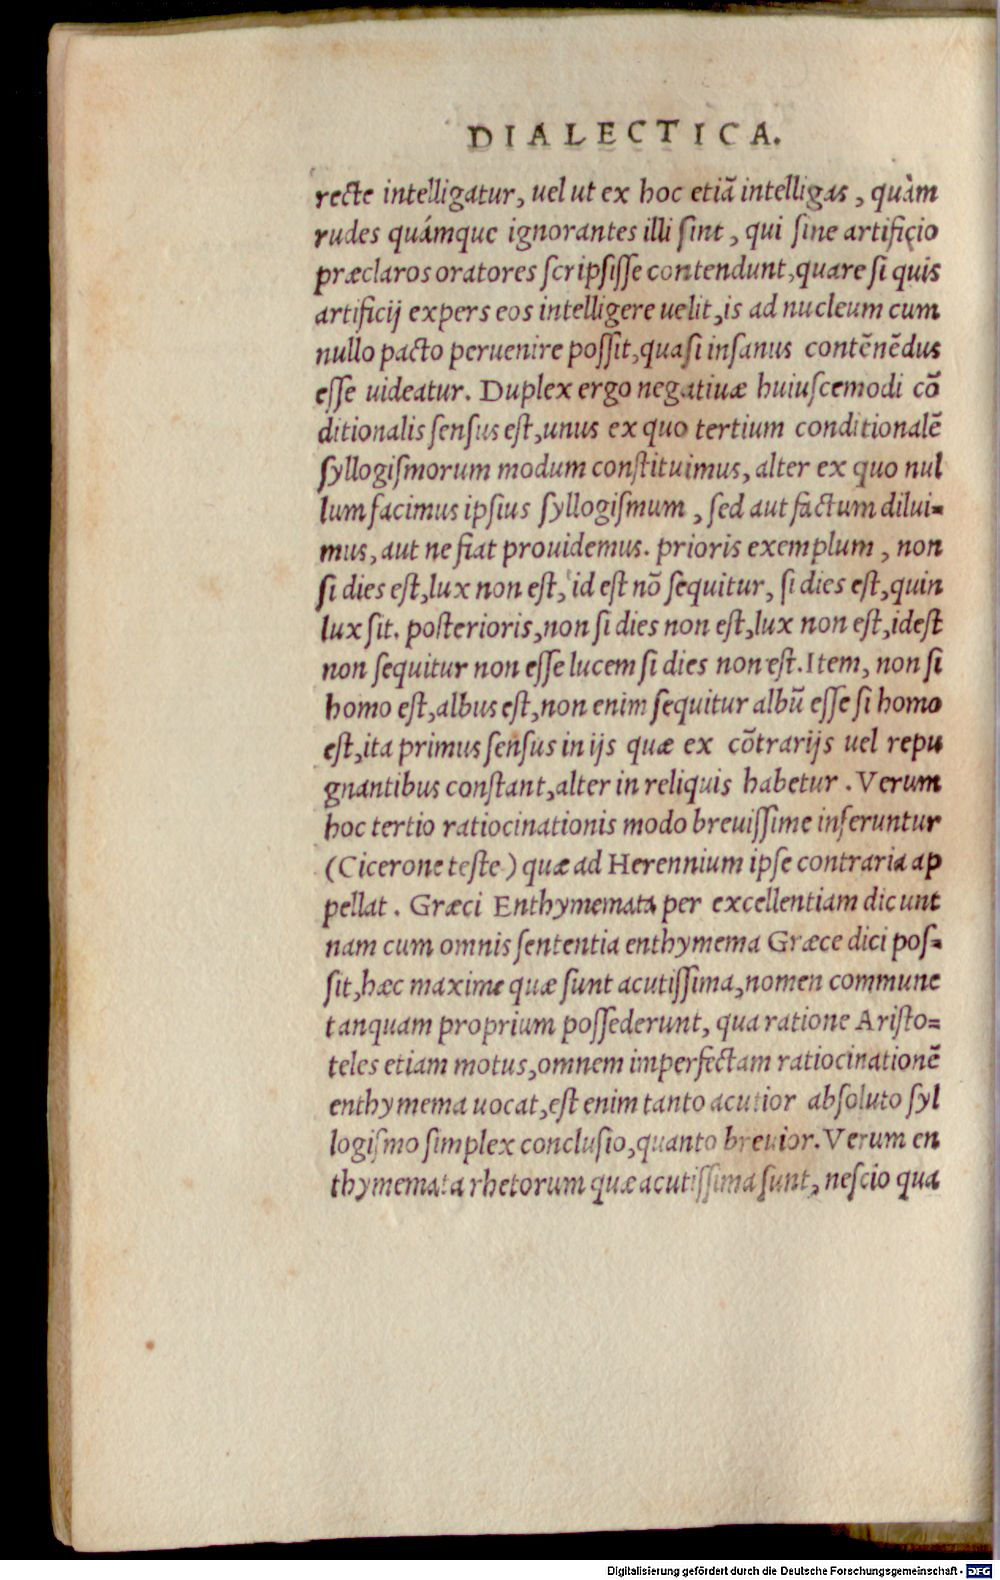 DIALECTICA.
recte intelligatur, uel ut ex hoc etiã intelligas, quàm
rudes quámque ignorantes illi ſint, qui ſine artificio
præclaros oratores ſcripſiſſe contendunt, quare ſi quis
artificij expers eos intelligere uelit, is ad nucleum cum
nullo pacto peruenire poſſit, quaſi inſanus contẽnẽdus
eſſe uideatur. Duplex ergo negatiuæ huiuſcemodi cõ
ditionalis ſenſus eſt, unus ex quo tertium conditionalẽ
ſyllogiſmorum modum conſtituimus, alter ex quo nul
lum facimus ipſius ſyllogiſmum, ſed aut factum dilui=
mus, aut ne fiat prouidemus. prioris exemplum, non
ſi dies eſt, lux non eſt, id eſt nõ ſequitur, ſi dies eſt, quin
lux ſit. poſterioris, non ſi dies non eſt, lux non eſt, ideſt
non ſequitur non eſſe lucem ſi dies non eſt. Item, non ſi
homo eſt, albus eſt, non enim ſequitur albũ eſſe ſi homo
eſt, ita primus ſenſus in ijs quæ ex cõtrarijs uel repu
gnantibus conſtant, alter in reliquis habetur. Verum
hoc tertio ratiocinationis modo breuiſſime inferuntur
(Cicerone teſte) quæ ad Herennium ipſe contraria ap
pellat. Græci Enthymemata per excellentiam dicunt
nam cum omnis ſententia enthymema Græce dici poſ=
ſit, hæc maxime quæ ſunt acutiſſima, nomen commune
tanquam proprium poſſederunt, qua ratione Ariſto=
teles etiam motus, omnem imperfectam ratiocinationẽ
enthymema uocat, eſt enim tanto acutior abſoluto ſyl
logiſmo ſimplex concluſio, quanto breuior. Verum en
thymemata rhetorum quæ acutiſſima ſunt, neſcio qua
Digitalisierung gefördert durch die Deutsche Forschungsgemeinschaft - DFG